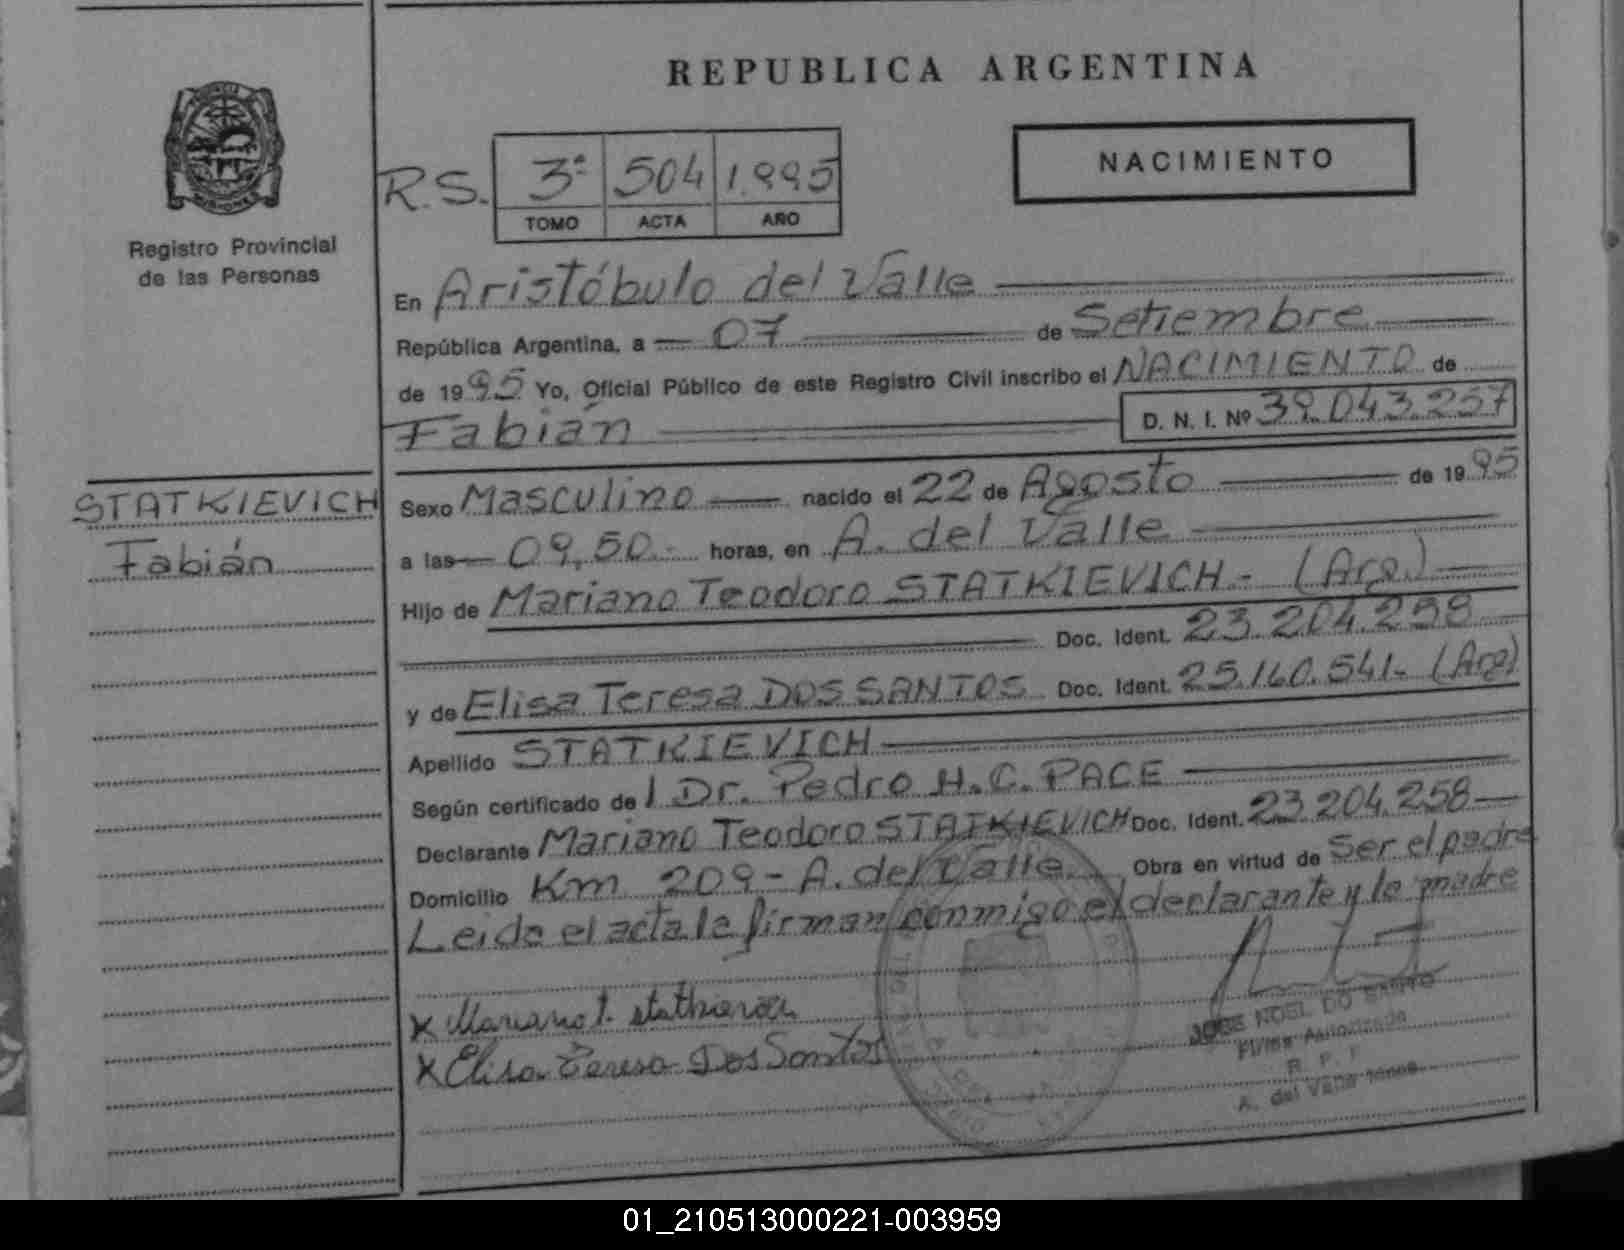 REPUBLICA ARGENTINA
NACIMIENTO
R.S. 3ª 504 1.995
TOMO ACTA AÑO
Registro Provincial
de las Personas
En Aristóbulo del Valle
República Argentina, a 07 de Setiembre
de 1995 Yo, Oficial Público de este Registro Civil inscribo el NACIMIENTO de
Fabián D. N. I. Nº 39.043.257
STATKIEVICH
Fabián
Sexo Masculino nacido el 22 de Agosto de 1995
a las 09,50.- horas, en A. del Valle
Hijo de Mariano Teodoro STATKIEVICH - (Arg.)
Doc. Ident. 23.204.258
y de Elisa Teresa DOS SANTOS Doc. Ident. 25.160.541.- (Arg)
Apellido STATKIEVICH
Según certificado de Dr. Pedro H. C. PACE
Declarante Mariano Teodoro STATKIEVICH Doc. Ident. 23.204.258
Domicilio Km 209 - A. del Valle Obra en virtud de Ser el padre
Leida el acta la firman conmigo el declarante y la madre
x Mariano t. statkievich
x Elisa Teresa Dos Santos
JOSE NOEL DO SANTO
Firma Autorizada
R. P. P.
A. del Valle
01_210513000221-003959